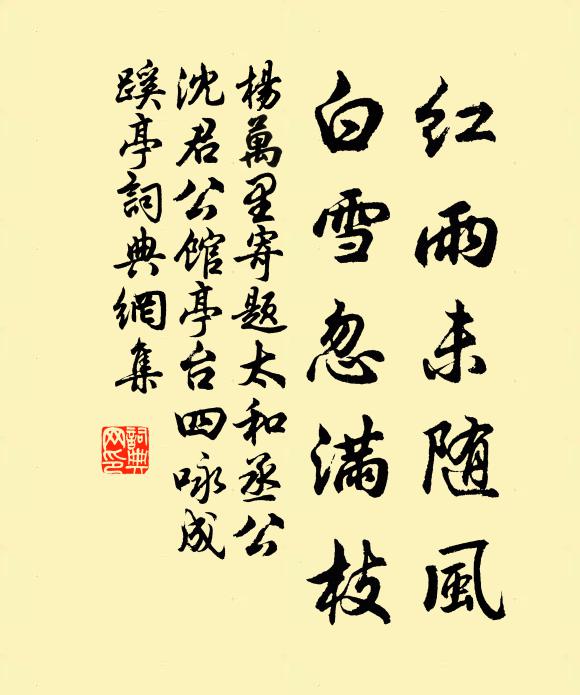 红雨未随風
白雪忽满枝
楊萬里寄题太和丞公
沈君公馆亭台四咏成
蹊亭詞典網集
詞典
网印